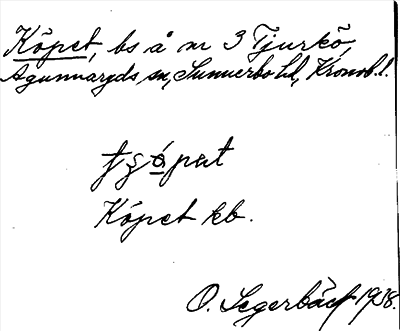 Köpet, bs å nr 3 Tjurkö,
Agunnaryds sn, Sunnerbo hd, Kronob. l.
Köpet kb.
O. Segerbäck 1938.